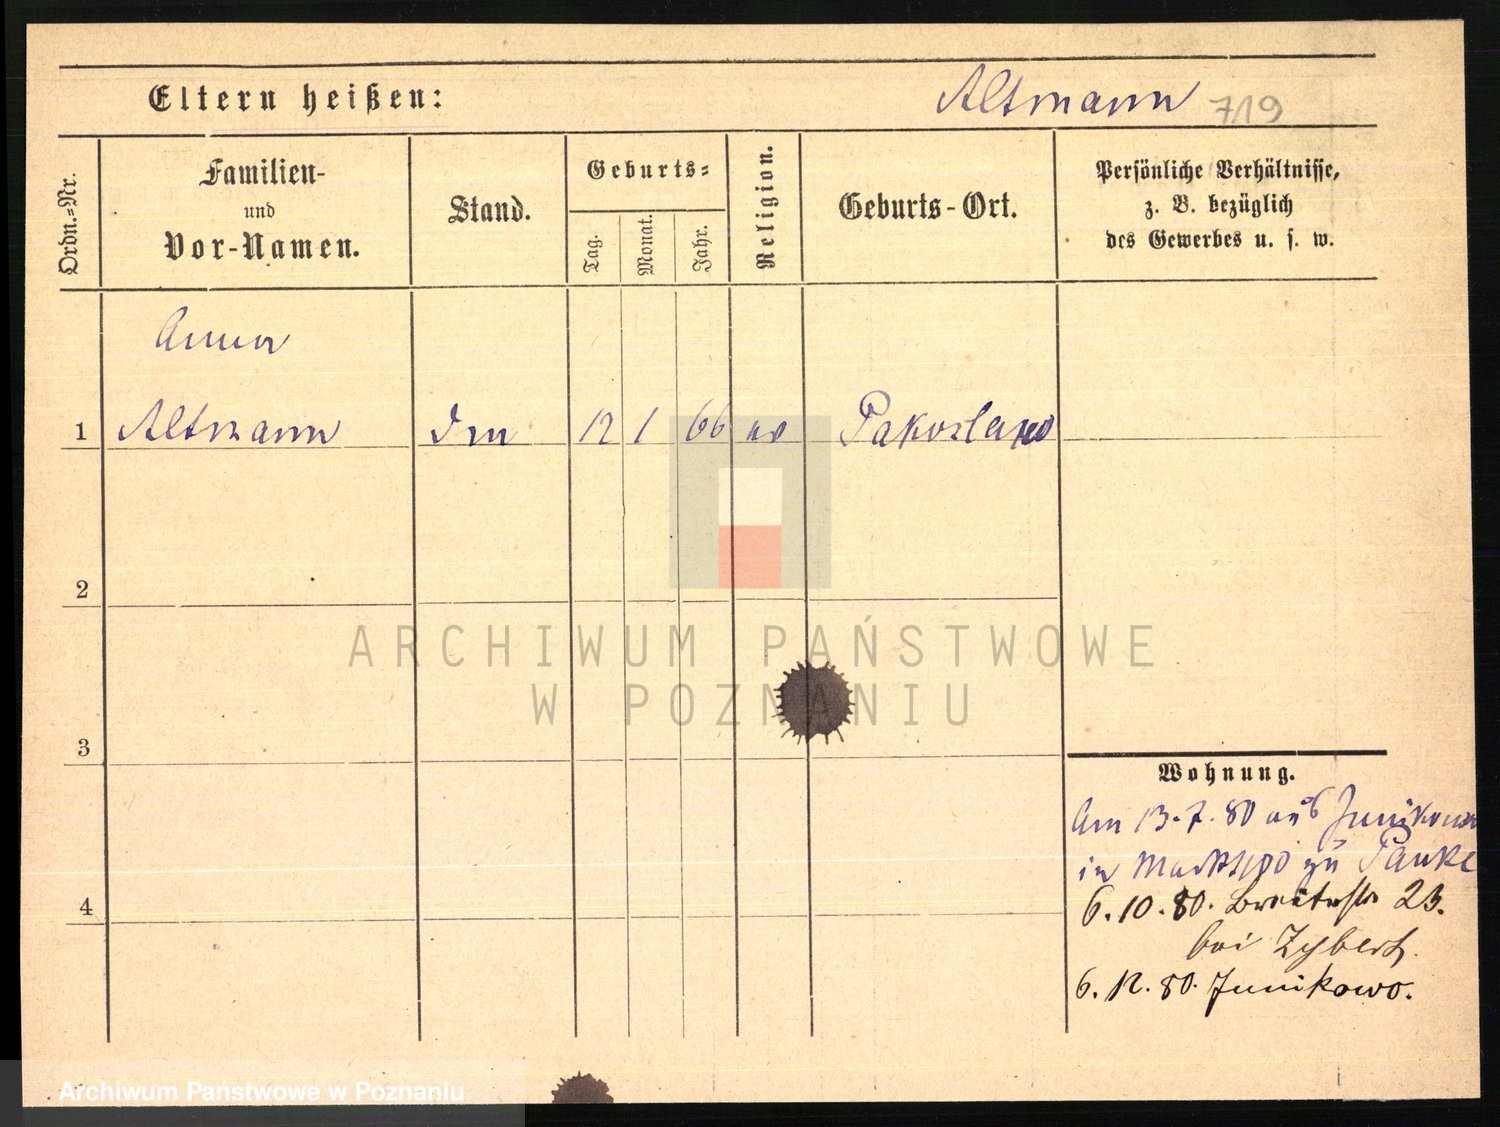 Eltern heißen:
Altmann 719
Ordn.=Nr.
Familien-
und
Vor-Namen.
Stand.
Geburts=
Tag.
Monat.
Jahr.
Religion.
Geburts-Ort.
Persönliche Verhältnisse,
z. B. bezüglich
des Gewerbes u. s. w.
Anna
1 Altmann 12 1 66 Pakoslawo
2
ARCHIWUM PAŃSTWOWE
W POZNANIU
3
Wohnung.
Am 13.7.80 aus Junikowo
in zu Panke
4
6.10.80. Breitestr 23.
bei Zybert.
6.12.80. Junikowo.
Archiwum Państwowe w Poznaniu